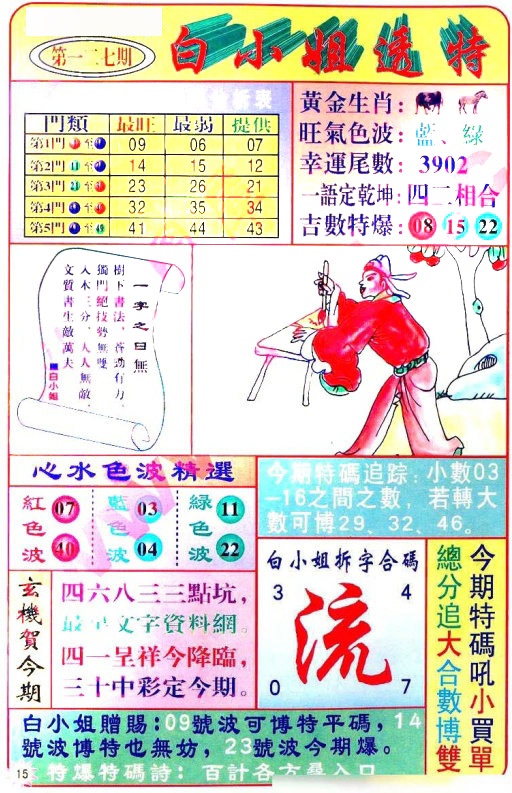 第一二七期
白小姐透特
門類 最旺 最弱 提供
第1門 至 09 06 07
第2門 11 至 14 15 12
第3門 21 至 23 26 21
第4門 至 32 35 34
第5門 至 49 41 44 43
黃金生肖:
旺氣色波: 藍、綠
幸運尾數: 3902
一語定乾坤: 四二相合
吉數特爆: 08 15 22
一字之曰無
樹下書法、蒼勁有力、
獨門絕技勢無雙
入木三分、人人無敵、
文質書生敵萬夫
白小姐
心水色波精選
紅色波 07 40
藍色波 03 04
綠色波 11 22
今期特碼追踪: 小數03
-16之間之數, 若轉大
數可博29、32、46。
玄機賀今期
四六八三三點坑,
最早文字資料網。
四一呈祥今降臨,
三十中彩定今期。
白小姐拆字合碼
3 4
流
0 7
今期特碼吼小買單
總分追大合數博雙
白小姐贈賜: 09號波可博特平碼, 14
號波博特也無妨, 23號波今期爆。
特爆特碼詩: 百計各方尋入口
15